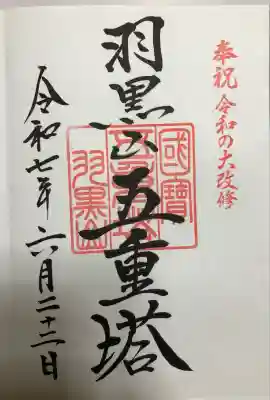 奉祝 令和の大改修
羽黒山五重塔
國寶
羽黒山
令和七年六月二十二日